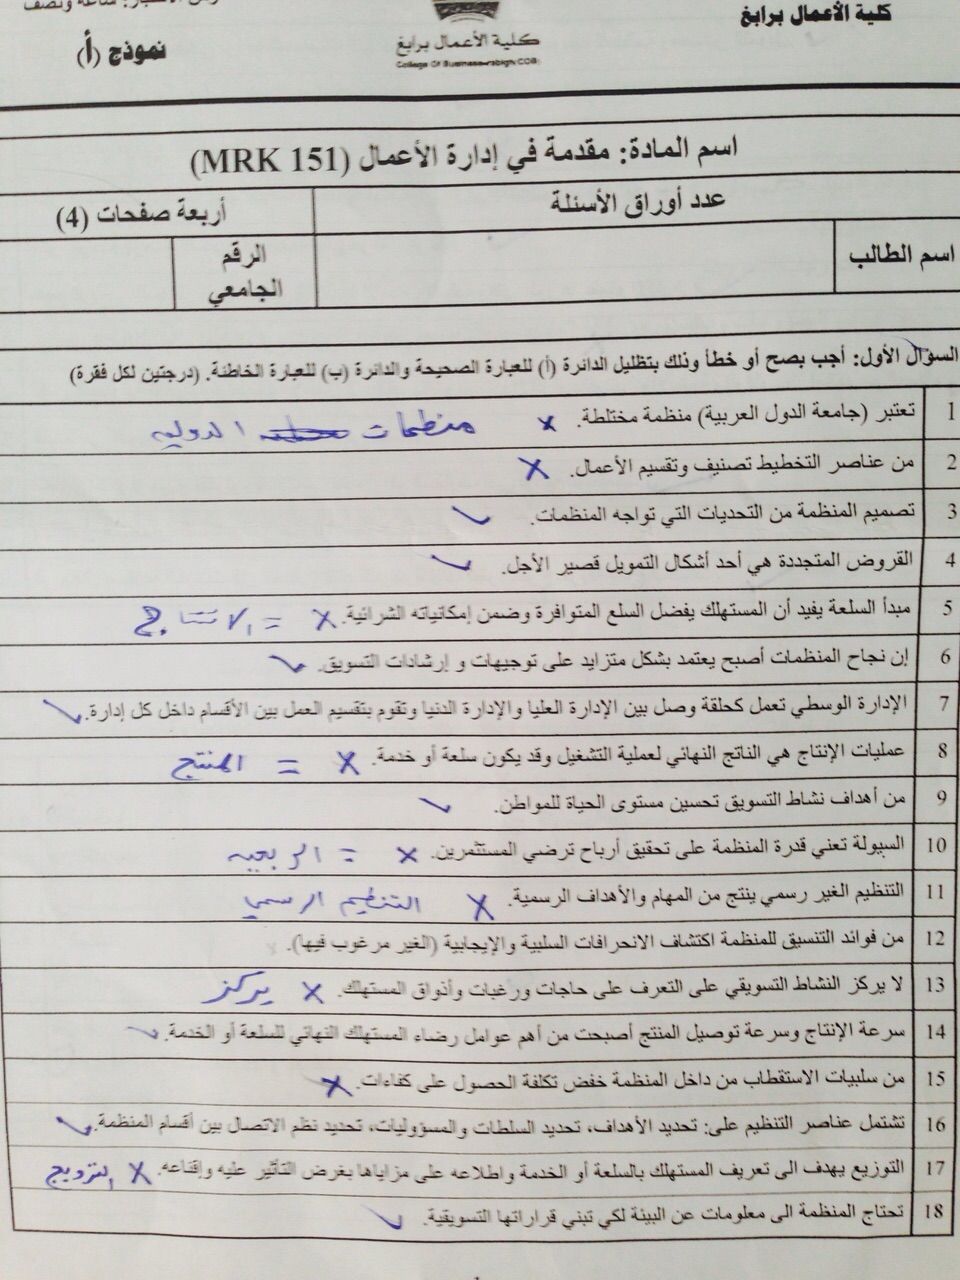 كلية الأعمال برابغ
كلية الأعمال برابغ
College Of Business-rabigh(COB)
نموذج (أ)
اسم المادة: مقدمة في إدارة الأعمال (MRK 151)
عدد أوراق الأسئلة أربعة صفحات (4)
اسم الطالب الرقم الجامعي
السؤال الأول: أجب بصح أو خطأ وذلك بتظليل الدائرة (أ) للعبارة الصحيحة والدائرة (ب) للعبارة الخاطئة. (درجتين لكل فقرة)
1 تعتبر (جامعة الدول العربية) منظمة مختلطة. ✗ منظمات الدوليه
2 من عناصر التخطيط تصنيف وتقسيم الأعمال. ✗
3 تصميم المنظمة من التحديات التي تواجه المنظمات. ✓
4 القروض المتجددة هي أحد أشكال التمويل قصير الأجل. ✓
5 مبدأ السلعة يفيد أن المستهلك يفضل السلع المتوافرة وضمن إمكانياته الشرائية. ✗ = الانتاج
6 إن نجاح المنظمات أصبح يعتمد بشكل متزايد على توجيهات و إرشادات التسويق. ✓
7 الإدارة الوسطي تعمل كحلقة وصل بين الإدارة العليا والإدارة الدنيا وتقوم بتقسيم العمل بين الأقسام داخل كل إدارة. ✓
8 عمليات الإنتاج هي الناتج النهائي لعملية التشغيل وقد يكون سلعة أو خدمة. ✗ = المنتج
9 من أهداف نشاط التسويق تحسين مستوى الحياة للمواطن. ✓
10 السيولة تعني قدرة المنظمة على تحقيق أرباح ترضي المستثمرين. ✗ = الربحيه
11 التنظيم الغير رسمي ينتج من المهام والأهداف الرسمية. ✗ التنظيم الرسمي
12 من فوائد التنسيق للمنظمة اكتشاف الانحرافات السلبية والإيجابية (الغير مرغوب فيها).
13 لا يركز النشاط التسويقي على التعرف على حاجات ورغبات وأذواق المستهلك. ✗ يركز
14 سرعة الإنتاج وسرعة توصيل المنتج أصبحت من أهم عوامل رضاء المستهلك النهائي للسلعة أو الخدمة. ✓
15 من سلبيات الاستقطاب من داخل المنظمة خفض تكلفة الحصول على كفاءات. ✗
16 تشتمل عناصر التنظيم على: تحديد الأهداف، تحديد السلطات والمسؤوليات، تحديد نظم الاتصال بين أقسام المنظمة. ✓
17 التوزيع يهدف الى تعريف المستهلك بالسلعة أو الخدمة واطلاعه على مزاياها بغرض التأثير عليه وإقناعه. ✗ الترويج
18 تحتاج المنظمة الى معلومات عن البيئة لكي تبني قراراتها التسويقية. ✓